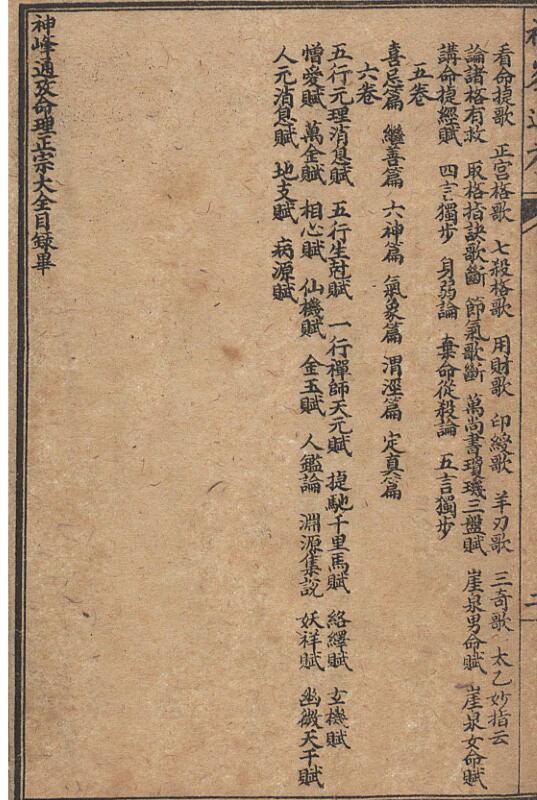 看命捷歌 正官格歌 七殺格歌 用財歌 印綬歌 羊刃歌 三奇歌 太乙妙指云
論諸格有救 取格指訣歌斷 節氣歌斷 萬尚書瓊璣三盤賦 崖泉男命賦 崖泉女命賦
講命捷經賦 四言獨步 身弱論 棄命從殺論 五言獨步
五卷
喜忌篇 繼善篇 六神篇 氣象篇 渭涇篇 定真篇
六卷
五行元理消息賦 五行生尅賦 一行禪師天元賦 捷馳千里馬賦 絡繹賦 玄機賦
憎愛賦 萬金賦 相心賦 仙機賦 金玉賦 人鑑論 淵源集說 妖祥賦 幽微天干賦
人元消息賦 地支賦 病源賦
神峰通攷命理正宗大全目錄畢